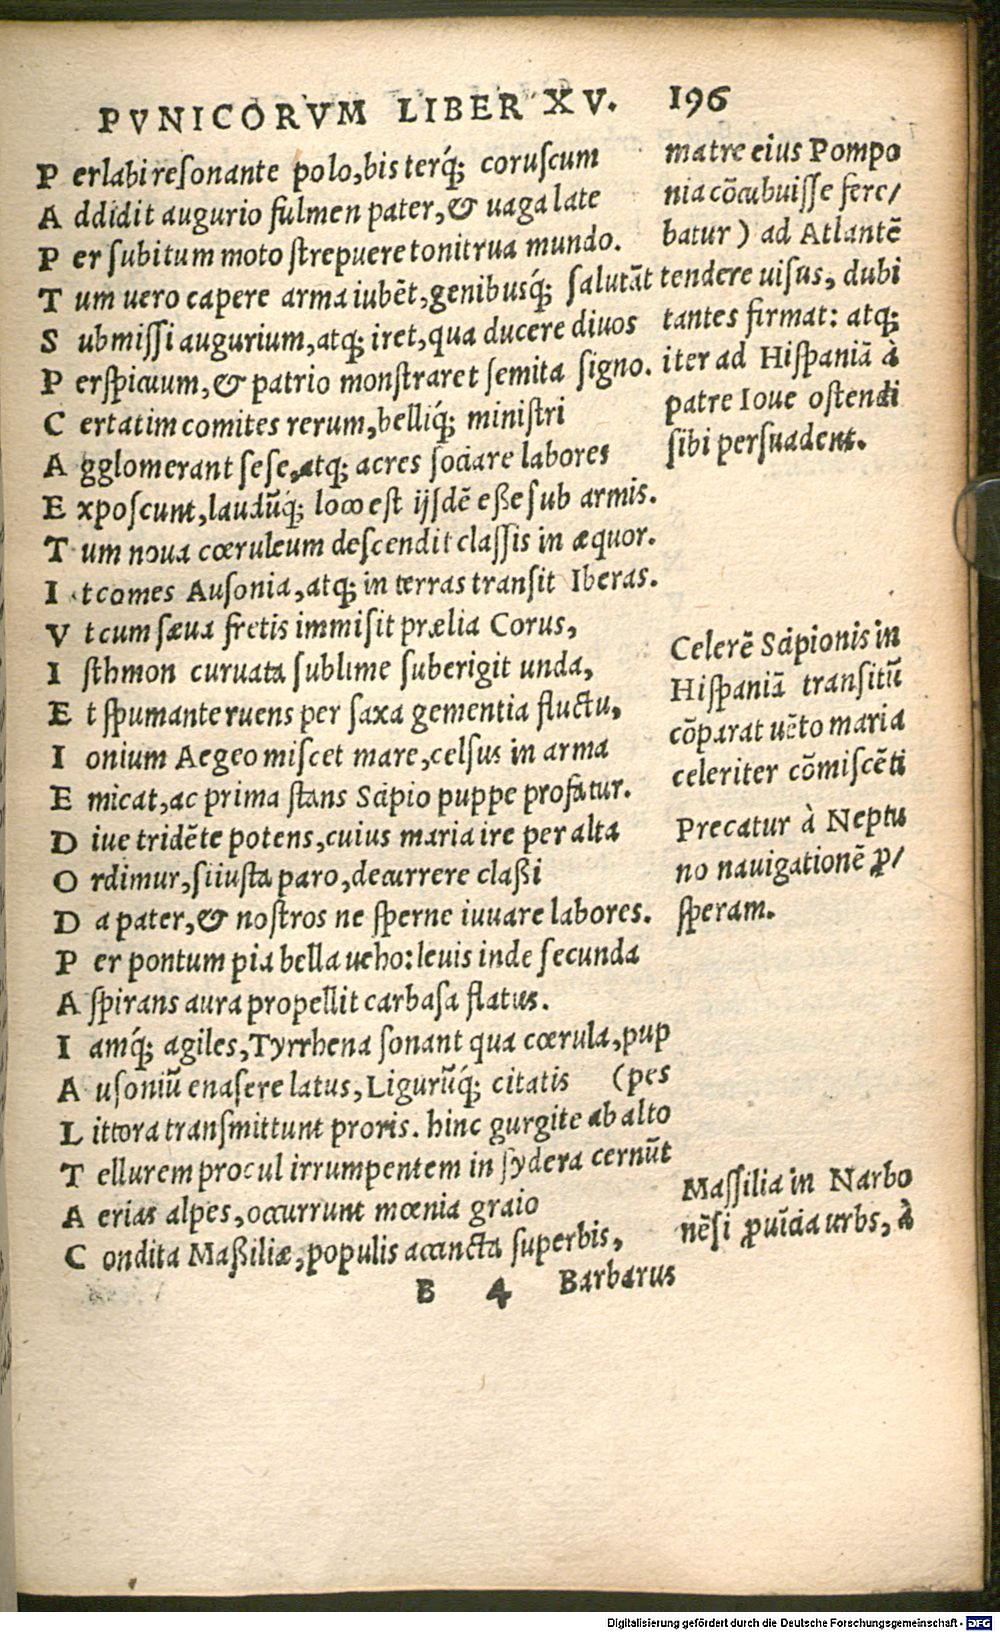 PVNICORVM LIBER XV. 196
P erlabi reſonante polo,bis terq́; coruſcum
A ddidit augurio fulmen pater,& uaga late
P er ſubitum moto ſtrepuere tonitrua mundo.
T um uero capere arma iubēt,genibusq́; ſalutāt
S ubmiſſi augurium,atq; iret,qua ducere diuos
P erſpicuum,& patrio monſtraret ſemita ſigno.
C ertatim comites rerum,belliq́; miniſtri
A gglomerant ſeſe,atq; acres ſociare labores
E xpoſcunt,laudūq́; loco eſt ijſdē eße ſub armis.
T um noua cœruleum deſcendit claſſis in æquor.
I t comes Auſonia,atq; in terras tranſit Iberas.
V t cum ſæua fretis immiſit prælia Corus,
I ſthmon curuata ſublime ſuberigit unda,
E t ſpumante ruens per ſaxa gementia fluctu,
I onium Aegeo miſcet mare,celſus in arma
E micat,ac prima ſtans Scipio puppe profatur.
D iue tridēte potens,cuius maria ire per alta
O rdimur,ſi iuſta paro,decurrere claßi
D a pater,& noſtros ne ſperne iuuare labores.
P er pontum pia bella ueho:leuis inde ſecunda
A ſpirans aura propellit carbaſa flatus.
I amq́; agiles,Tyrrhena ſonant qua cœrula,pup
A uſoniū enaſere latus,Ligurūq́; citatis (pes
L ittora tranſmittunt proris. hinc gurgite ab alto
T ellurem procul irrumpentem in ſydera cernūt
A erias alpes,occurrunt mœnia graio
C ondita Maßiliæ,populis accincta ſuperbis,
B 4 Barbarus
matre eius Pompo
nia cōcubuiſſe fere/
batur ) ad Atlantē
tendere uiſus, dubi
tantes firmat: atq;
iter ad Hiſpaniā à
patre Ioue oſtendi
ſibi perſuadent.
Celerē Scipionis in
Hiſpaniā tranſitū
cōparat uēto maria
celeriter cōmiſcēti
Precatur à Neptu
no nauigationē ꝓ/
ſperam.
Maſſilia in Narbo
nēſi ꝓuīcia urbs, à
Digitalisierung gefördert durch die Deutsche Forschungsgemeinschaft - DFG